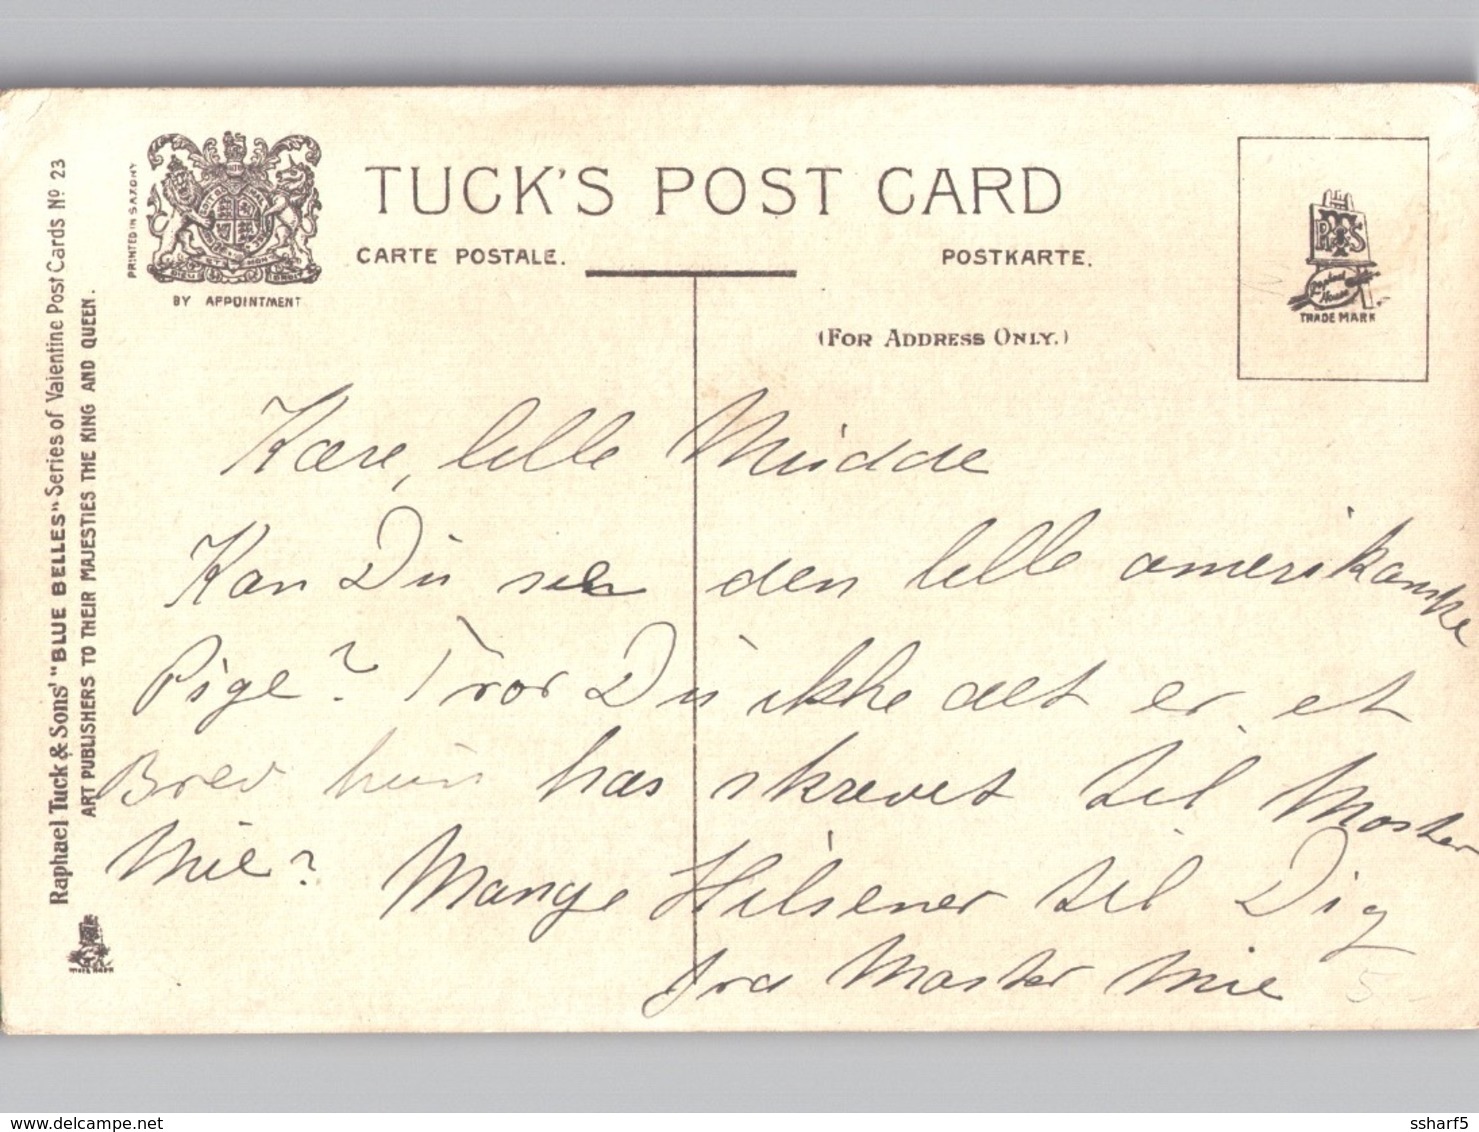 TUCK'S POST CARD
CARTE POSTALE.
POSTKARTE.
(FOR ADDRESS ONLY.)
BY APPOINTMENT
PRINTED IN SAXONY
TRADE MARK
Raphael Tuck & Sons' "BLUE BELLES" Series of Valentine Post Cards Nº 23
ART PUBLISHERS TO THEIR MAJESTIES THE KING AND QUEEN.
Kære, lille Mudde
Kan Du se den lille amerikanske
Pige? Tror Du ikke det er et
Brev hun har skrevet til Moster
Mie? Mange Hilsener til Dig
fra Moster Mie
5-
www.delcampe.net
ssharf5